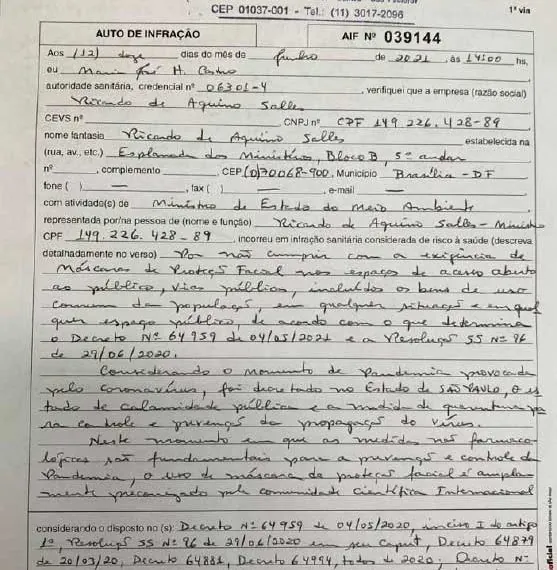 CEP 01037-001 - Tel.: (11) 3017-2096
1ª via
AUTO DE INFRAÇÃO
AIF Nº 039144
Aos (12) doze dias do mês de Junho de 2021, às 14:00 hs,
eu Maria José H. Castro
autoridade sanitária, credencial nº 06301-4, verifiquei que a empresa (razão social)
Ricardo de Aquino Salles
CEVS nº CNPJ nº CPF 149.226.428-89
nome fantasia Ricardo de Aquino Salles estabelecida na
(rua, av., etc.) Esplanada dos Ministérios, Bloco B, 5º andar
nº , complemento , CEP (0)70068-900, Município Brasília - DF
fone ( ) — , fax ( ) — , e-mail —
com atividade(s) de Ministro de Estado do Meio Ambiente
representada por/na pessoa de (nome e função) Ricardo de Aquino Salles - Ministro
CPF 149.226.428-89, incorreu em infração sanitária considerada de risco à saúde (descreva
detalhadamente no verso) Por não cumprir com a exigência de
Máscaras de Proteção Facial nos espaços de acesso aberto
ao público, vias públicas, incluídos os bens de uso
comum da população, em qualquer situação e em qual
quer espaço público, de acordo com o que determina
o Decreto Nº 64959 de 04/05/2021 e a Resolução SS Nº 96
de 29/06/2020.
Considerando o momento de Pandemia provocada
pelo coronavírus, foi decretado no Estado de SÃO PAULO, o es
tado de calamidade pública e a medida de quarentena pa
ra controle e prevenção da propagação do vírus.
Neste momento em que as medidas não farmaco
lógicas são fundamentais para a prevenção e controle da
Pandemia, o uso de máscara de proteção facial é ampla
mente preconizado pela comunidade científica Internacional
considerando o disposto no (s): Decreto Nº 64959 de 04/05/2020, inciso I do artigo
1º, Resolução SS Nº 96 de 29/06/2020 em seu caput, Decreto 64879
de 20/03/20, Decreto 64881, Decreto 64994, todos de 2020. Decreto Nº
oficial